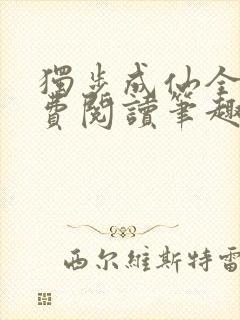 獨步成仙全
費閱讀筆趣
西尔維斯特雷